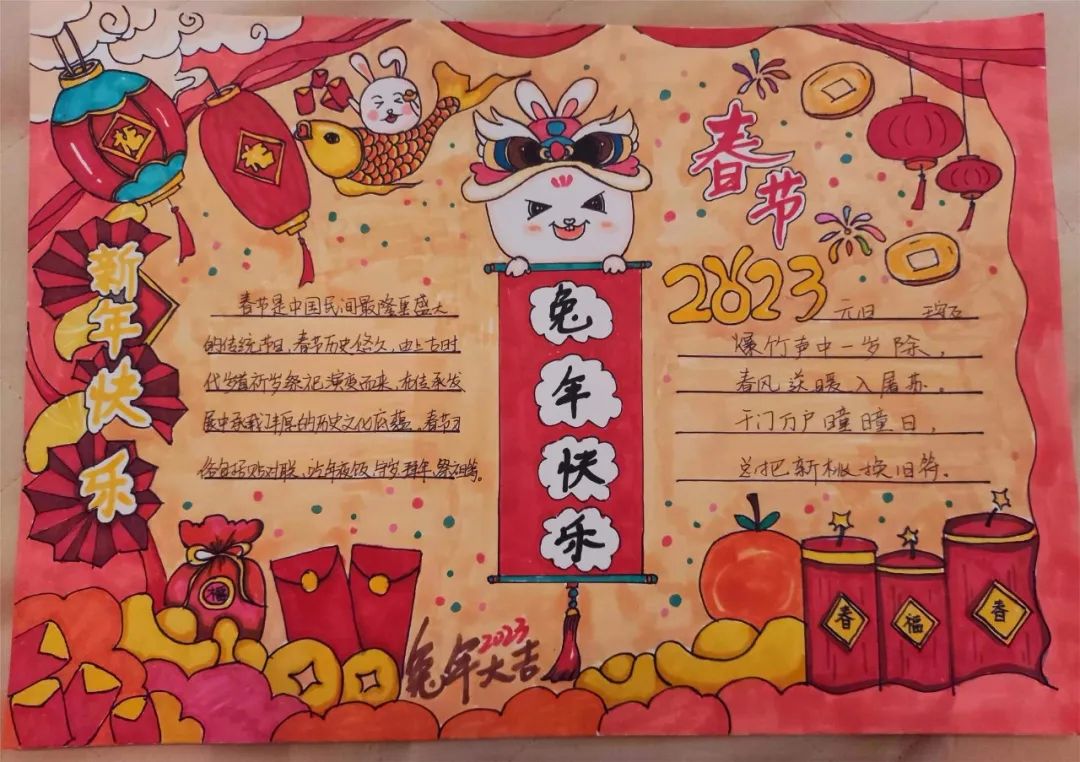 新年快乐
春节是中国民间最隆重盛大
的传统节日。春节历史悠久,由上古时
代岁首祈岁祭祀演变而来,在传承发
展中承载了丰厚的历史文化底蕴。春节习
俗包括贴对联、吃年夜饭、守岁、拜年、祭祖等。
兔年快乐
春节
2023
元日 王安石
爆竹声中一岁除,
春风送暖入屠苏。
千门万户瞳瞳日,
总把新桃换旧符.
福
2023
兔年大吉
春
福
春